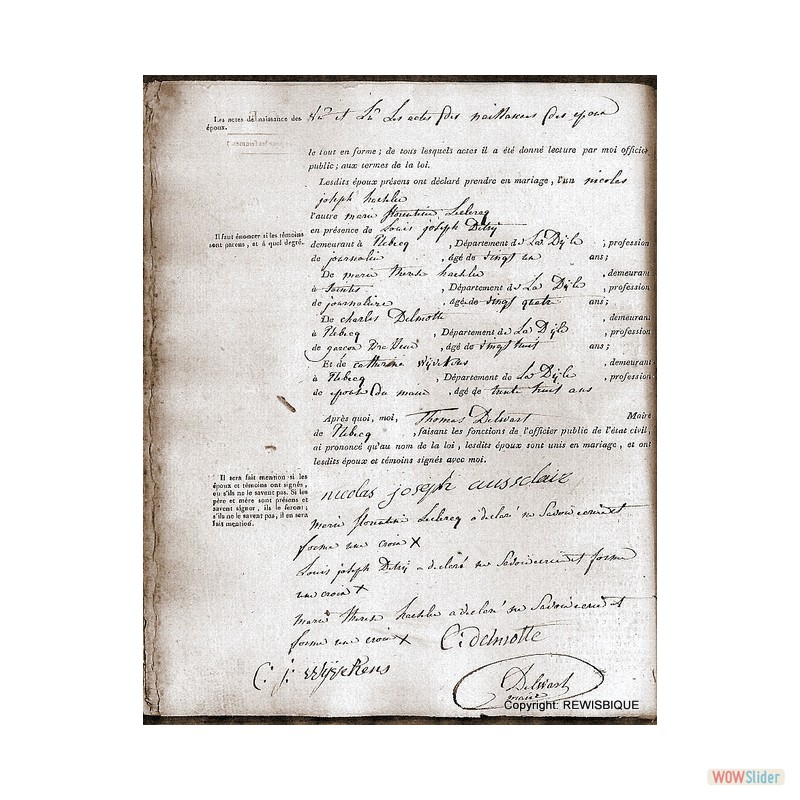 Les actes de naissance des
époux.
Vu et Lu Les actes des naissances des epoux
le tout en forme ; de tous lesquels actes il a été donné lecture par moi officier
public ; aux termes de la loi.
Lesdits époux présens ont déclaré prendre en mariage, l'un nicolas
joseph
l'autre marie florentine Leclercq
Il faut énoncer si les témoins
sont parens, et à quel degré.
en présence de Louis joseph Detry
demeurant à Rebecq , Département de La Dÿle ; profession
de journalier , âgé de vingt un ans ;
De marie therese , demeurant
à Saintes , Département de La Dÿle , profession
de journaliere , âgé de vingt quatre ans ;
De charles Delmotte , demeurant
à Rebecq , Département de La Dÿle , profession
de garcon , âgé de vingt huit ans ;
Et de catherine wÿvekens , demeurant
à Rebecq , Département de La Dÿle , profession
de epouse du maire , âgé de trente huit ans
Après quoi, moi, Thomas Delwart Maire
de Rebecq , faisant les fonctions de l'officier public de l'état civil,
ai prononcé qu'au nom de la loi, lesdits époux sont unis en mariage, et ont
lesdits époux et témoins signés avec moi.
Il sera fait mention si les
époux et témoins ont signés,
ou s'ils ne le savent pas. Si les
père et mère sont présens et
savent signer, ils le feront ;
s'ils ne le savent pas, il en sera
fait mention.
nicolas joseph aussclair
Marie florentine Leclercq a declaré ne Savoir ecrire et
forme une croix X
Louis joseph Detry a declaré ne Savoir ecrire et forme
une croix +
marie therese a declaré ne Savoir ecrire et
forme une croix X C: delmotte
C: j: wÿveKens
Delwart
maire
Copyright: REWISBIQUE
WOWSlider